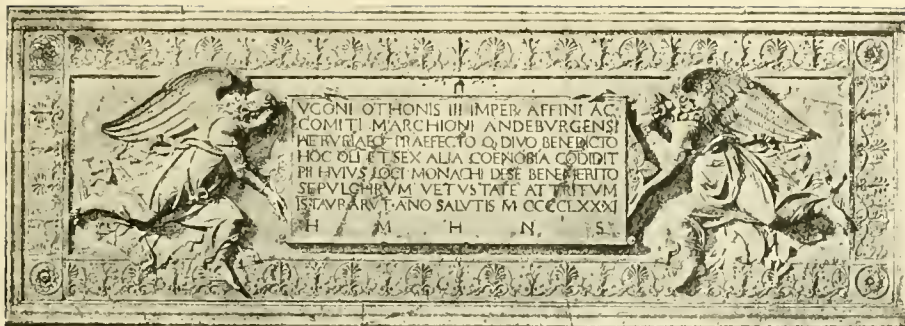 VGONI OTHONIS III IMPER AFFINI AC
COMITI MARCHIONI ANDEBVRGENSI
HETRVRIAEQ PRAEFECTO Q DIVO BENEDICTO
HOC OLI ET SEX ALIA COENOBIA CODIDIT
PII HVIVS LOCI MONACHI DE SE BENEMERITO
SEPVLCHRVM VETVSTATE ATTRITVM
ISTAVRARVT ANO SALVTIS M CCCCLXXXI
H M H N S